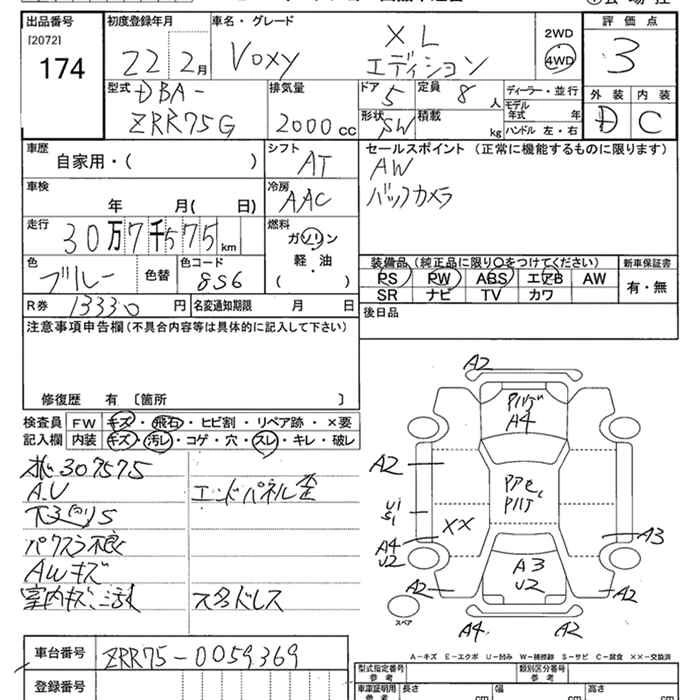 出品番号 初度登録年月 車名・グレード 評価点
[2072]
174
22 2月 Voxy XL エディション 2WD 4WD 3
型式 排気量 ドア 定員 ディーラー・並行 外装 内装
DBA- ZRR75G 2000cc 5 8人 モデル年式 年 D C
形状 SW 積載 kg ハンドル 左・右
車歴 シフト セールスポイント (正常に機能するものに限ります)
自家用・( ) AT AW
車検 冷房 バックカメラ
年 月( 日) AAC
走行 燃料
30万7千575km ガソリン
軽・油
( )
色 色コード 装備品 (純正品に限り○をつけてください) 新車保証書
ブルー 色替 8S6 PS PW ABS エアB AW 有・無
SR ナビ TV カワ
R券 13330円 名変通知期限 月 日 後日品
注意事項申告欄(不具合内容等は具体的に記入して下さい)
修復歴 有 〔箇所 〕
検査員 FW キズ・飛石・ヒビ割・リペア跡・×要
記入欄 内装 キズ・汚レ・コゲ・穴・スレ・キレ・破レ
307575
A.U エンドパネル歪
下廻りS
パワスラ不良
AWキズ
室内キズ、汚れ スタッドレス
A2
A4
A2
U1
S1
XX
A4
U2
A3
A3
U2
A2
A2
スペア
A4 A2
A-キズ E-エクボ U-凹み W-補修跡 S-サビ C-腐食 XX-交換済
車台番号 ZRR75-0059369
登録番号
型式指定番号 類別区分番号
参考 参考
車庫証明用 長さ 幅 高さ
参考 cm cm cm